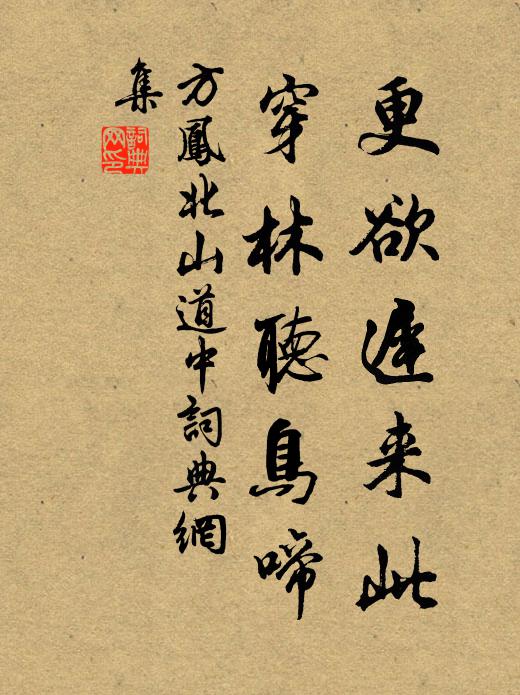 更欲遲来此
穿林聽鳥啼
方鳳北山道中詞典網
集
詞典网印